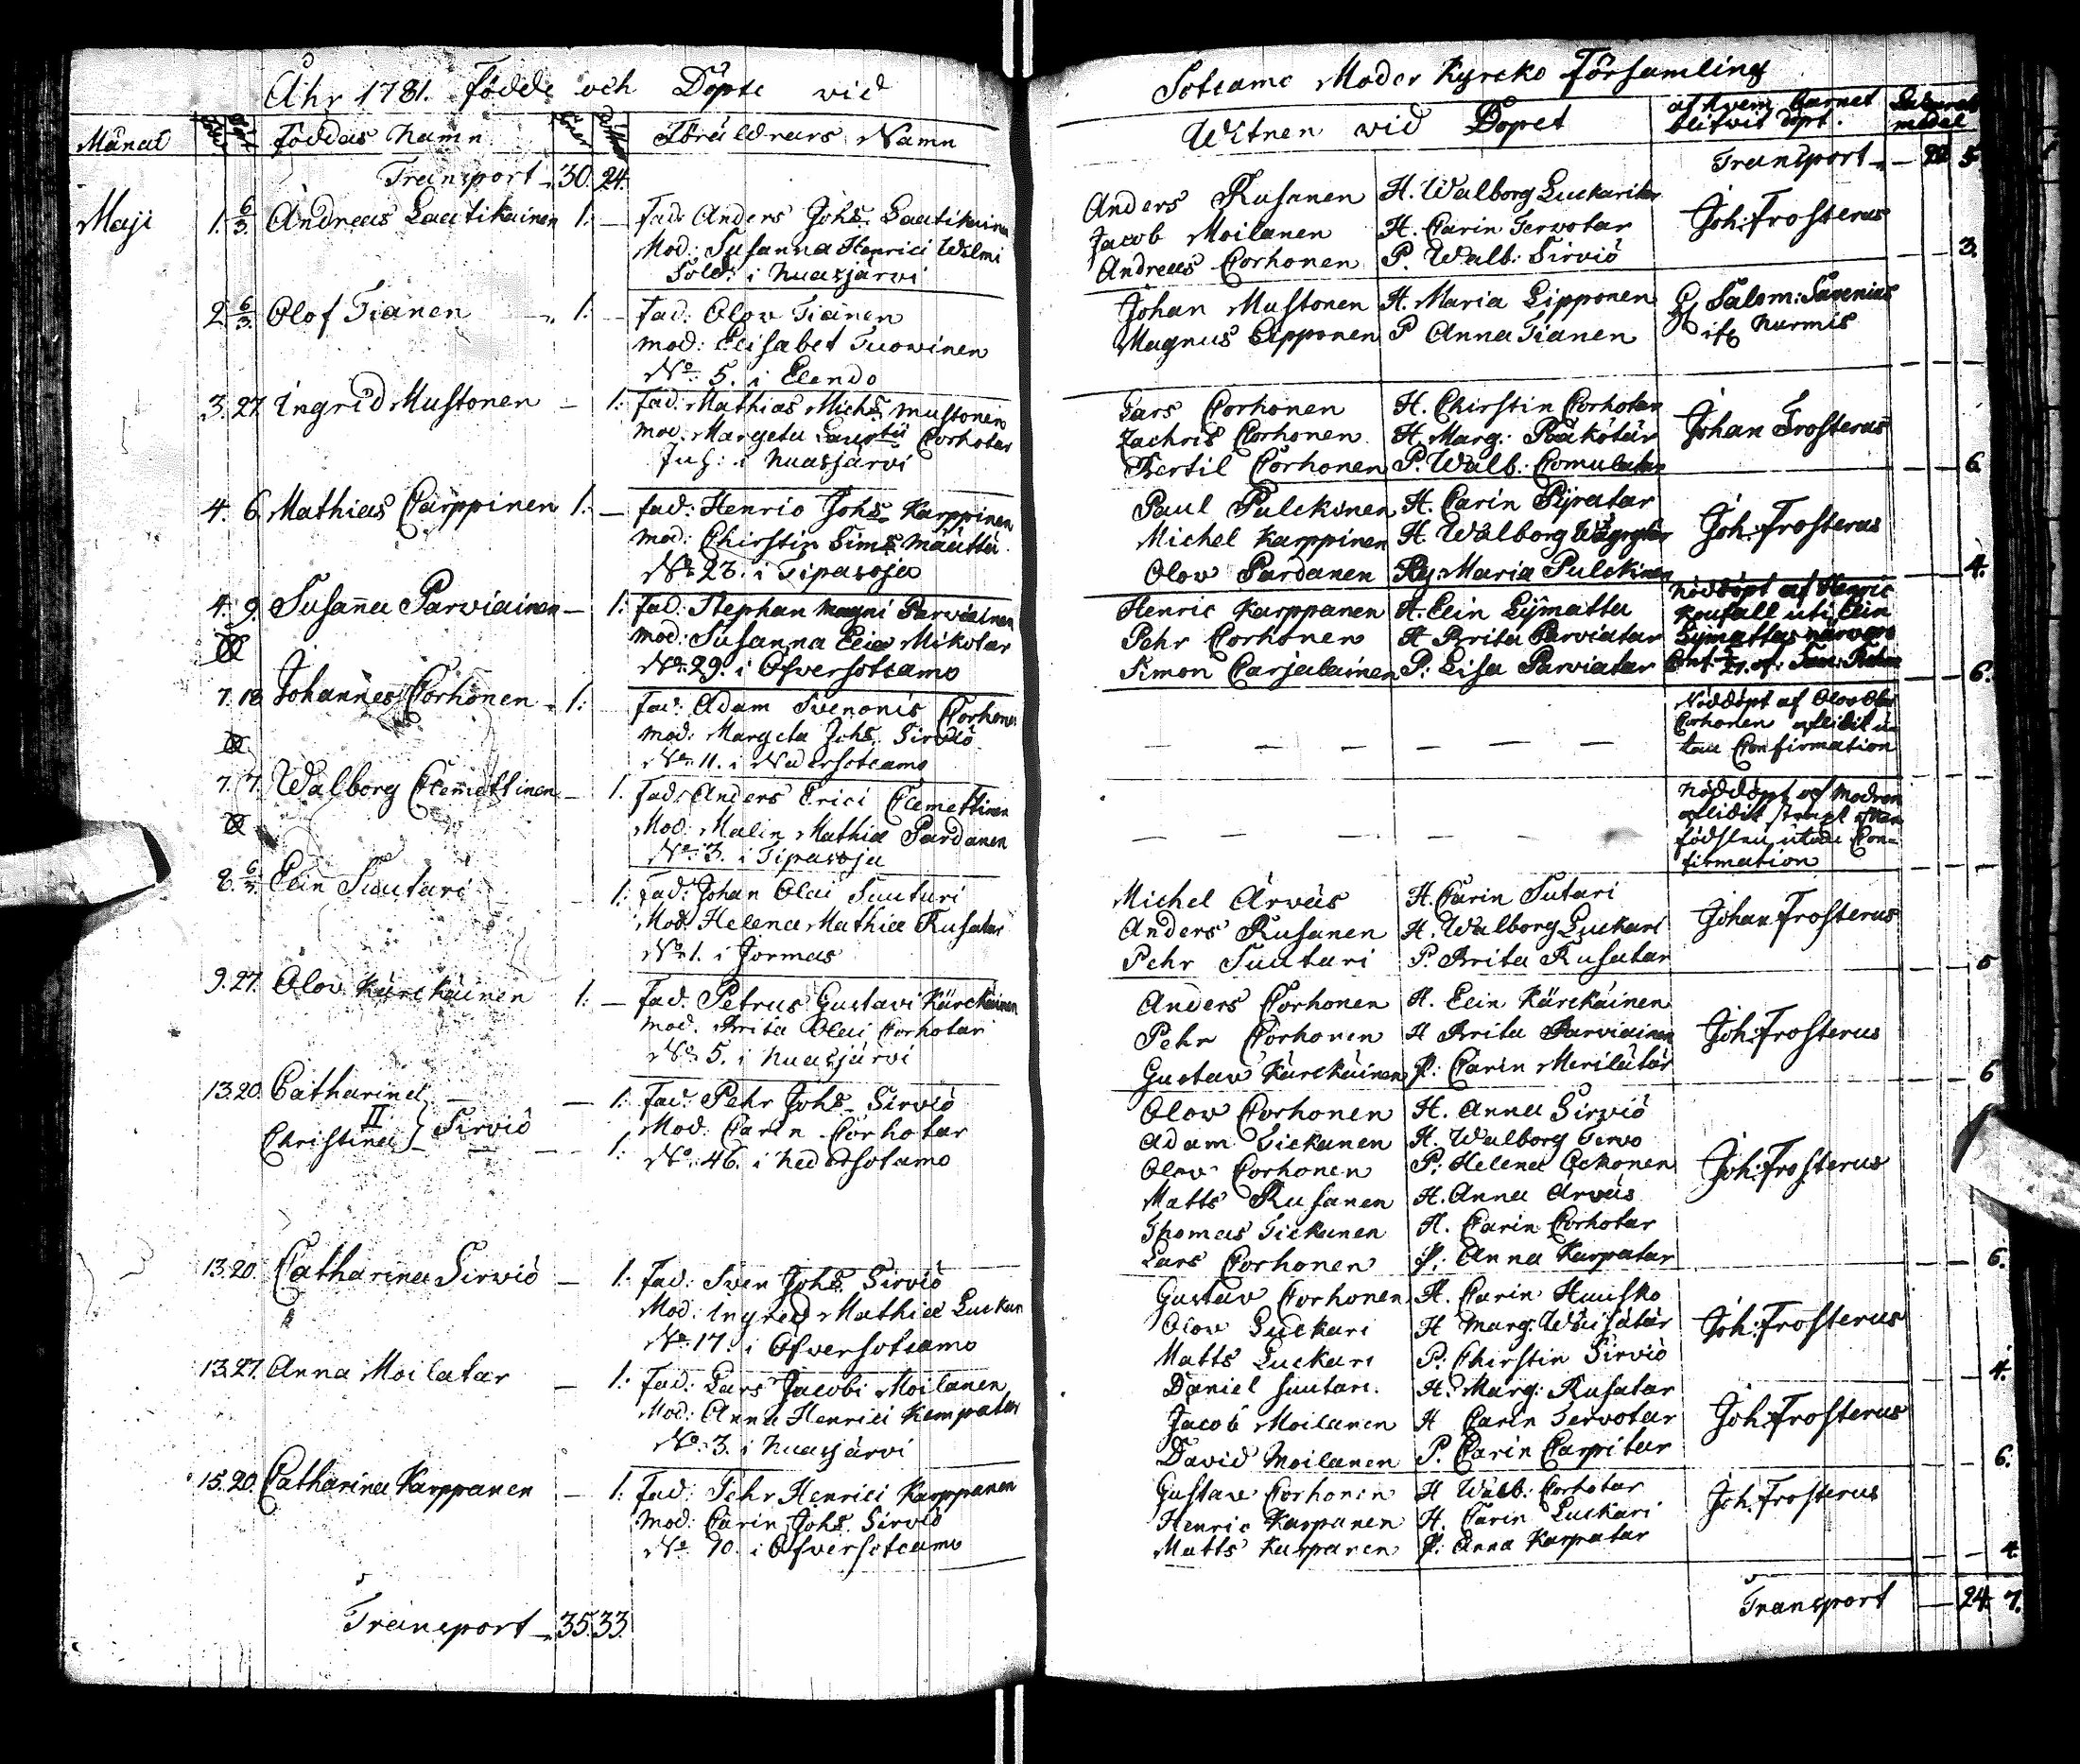 Åhr 1781. Födde och Döpte vid
Månat
Föddas Namn
Föräldrars Namn
Transport 30. 24.
Maji 1. 6/3. Andreas Lautikainen 1. — Fad: Anders Johs. Lautikainen
Mod: Susanna Henrici Wilmi
Sold: i Nuasjärvi
2. 6/3. Olof Tianen 1. — Fad: Olov Tianen
Mod: Elisabet Tuovinen
No. 5. i
3. 27. Ingrid Mustonen — 1. Fad: Mathias Michs. Mustonen
Mod: Margeta Corhotar
i Nuasjärvi
4. 6. Mathias Carppinen 1. — Fad: Henric Johs. Karppinen
Mod: Chirstin Sims. Määttä
No. 23. i Tipasoja
4. 9. Susanna Parviainen — 1. Fad: Stephan Magni Parviainen
Mod: Susanna Eliæ Mikotar
No. 29. i Öfversotcamo
7. 18. Johannes Corhonen 1. Fad: Adam Svenonis Corhonen
Mod: Margeta Johs. Sirviö
No. 11. i Nedersotcamo
7. 7. Walborg Clemettinen — 1. Fad: Anders Erici Clemettinen
Mod: Malin Mathiæ Pardanen
No. 3. i Tipasoja
8. Elin Suutari — 1. Fad: Johan Olai Suutari
Mod: Helena Mathiæ Rusatar
No. 1. i Jormas
9. 27. Olov Kärckäinen 1. — Fad: Petrus Gustavi Kärckäinen
Mod: Brita Olai Corhotar
No. 5. i Nuasjärvi
13. 20. Catharina — 1. Fad: Pehr Johs. Sirviö
II Sirviö Mod: Carin Corhotar
Christina — 1. No. 46. i Nedersotcamo
13. 20. Catharina Sirviö — 1. Fad: Sven Johs. Sirviö
Mod: Ingred Mathiæ Luckari
No. 17. i Öfversotcamo
13. 27. Anna Moilatar — 1. Fad: Lars Jacobi Moilanen
Mod: Anna Henrici Kempatar
No. 3. i Nuasjärvi
15. 20. Catharina Karppanen — 1. Fad: Pehr Henrici Karppanen
Mod: Carin Johs. Sirviö
No. 10. i Öfversotcamo
Transport 35. 33.
Sotcamo Moder Kyrcko Församling
Witnen vid Dopet
af hvem barnet
blifvit döpt.
Transport 5.
Anders Rusanen H. Walborg Luckaritar
Jacob Moilanen H. Carin Tervotar Joh: Frosterus
Andreas Corhonen P. Walb: Sirviö 3.
Johan Mustonen H. Maria Lipponen Salom: Savenius
Magnus Lipponen P. Anna Tianen Nurmis
Lars Corhonen H. Chirstin Corhotar
Zachris Corhonen H. Marg: Johan Frosterus
Bertil Corhonen P. Walb: Comulatar 6.
Paul Pulckinen H. Carin Pyratar
Michel Karppinen H. Walborg Joh: Frosterus
Olov Pardanen Maria Pulckinen 4.
Henric Karppanen H. Elin Lÿmatta Nöddöpt af Henric
Pehr Corhonen H. Brita Parviatar uti Elin
Simon Carjalainen P. Lisa Parviatar 6.
Nöddöpt af Olov
Corhonen aflidit u-
tan Confirmation
Nöddöpt af Modren
aflidit strax efter
födslen utan Con-
firmation
Michel Ärväs H. Carin Sutari
Anders Rusanen H. Walborg Luckari Johan Frosterus
Pehr Suutari P. Brita Rusatar
Anders Corhonen H. Elin Kärckäinen
Pehr Corhonen H. Brita Parviainen Joh: Frosterus
Gustav Kärckäinen P. Carin Merilätär 6
Olov Corhonen H. Anna Sirviö
Adam Tickanen H. Walborg Tervo
Olov Corhonen P. Helena Ockonen Joh: Frosterus
Matts Rusanen H. Anna Ärväs
Thomas Tickanen H. Carin Corhotar
Lars Corhonen P. Anna Karpatar 6.
Gustav Corhonen H. Carin Huusko
Olov Luckari H. Marg: Wäisätär Joh: Frosterus
Matts Luckari P. Chirstin Sirviö 4.
Daniel Suutari H. Marg: Rusatar
Jacob Moilanen H. Carin Tervotar Joh: Frosterus
David Moilanen P. Carin Carpitar 6.
Gustav Corhonen H. Walb: Corhotar
Henric Karpanen H. Carin Luckari Joh: Frosterus
Matts Karpanen P. Anna Karpatar 4.
Transport 24. 7.